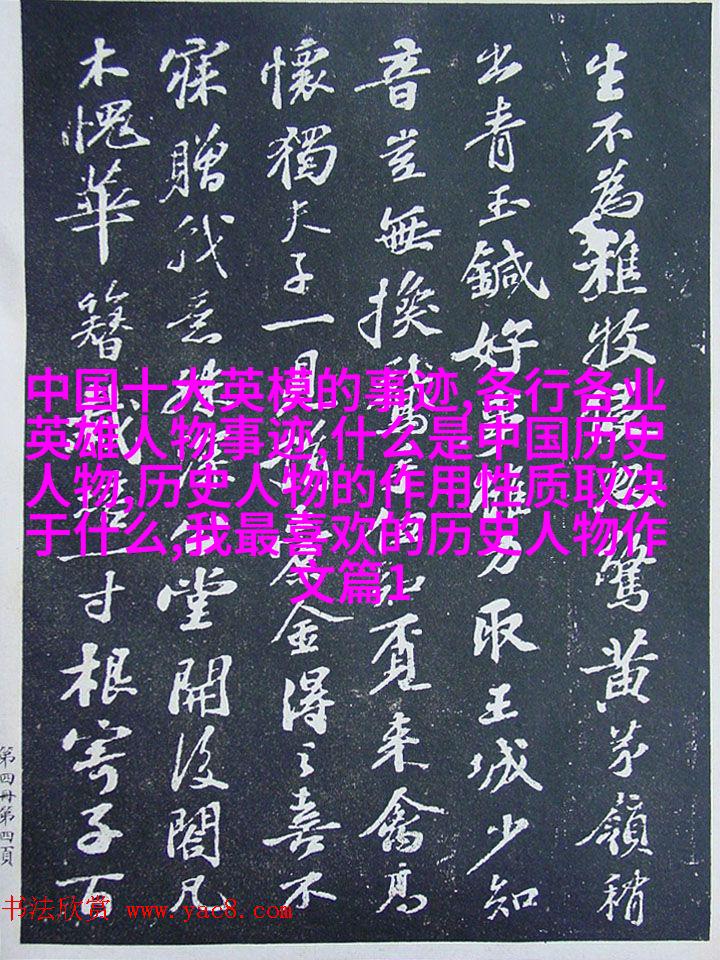 生不為雜牧歸驚黃茅嶺稍
出青玉鍼好事雖力取王城少知
音豈無換鵞手但知覓來禽高
懷獨夫子一見捐橐金得之喜不
寐贈我意殊厚公堂開後閣凡
木愧華簪栽培一寸根寄子百
第四冊第四頁
中国十大英模的事迹,各行各业
英雄人物事迹,什么是中国历史
人物,历史人物的作用性质取决
于什么,我最喜欢的历史人物作
文篇1
书法欣赏 www.yac8.com